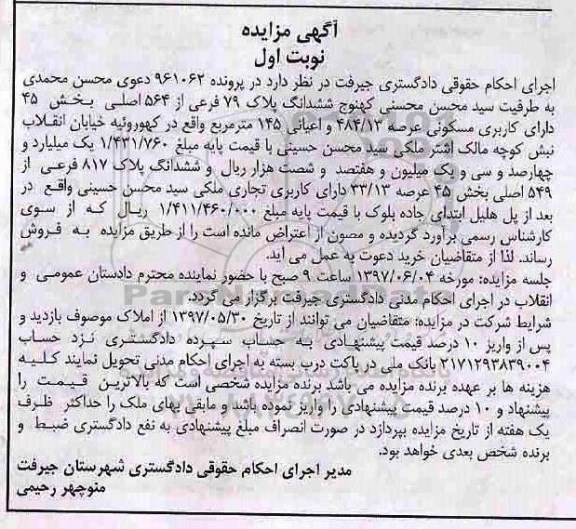 آگهی مزایده
نوبت اول
اجرای احکام حقوقی دادگستری جیرفت در نظر دارد در پرونده ۹۶۱۰۶۲ دعوی محسن محمدی
به طرفیت سید محسن محسنی کهنوج ششدانگ پلاک ۷۹ فرعی از ۵۶۴ اصلی بخش ۴۵
دارای کاربری مسکونی عرصه ۴۸۴/۱۳ و اعیانی ۱۴۵ مترمربع واقع در کهوروئیه خیابان انقلاب
نبش کوچه مالک اشتر ملکی سید محسن حسینی با قیمت پایه مبلغ ۱/۴۳۱/۷۶۰ یک میلیارد و
چهارصد و سی و یک میلیون و هفتصد و شصت هزار ریال و ششدانگ پلاک ۸۱۷ فرعی از
۵۴۹ اصلی بخش ۴۵ عرصه ۳۳/۱۳ دارای کاربری تجاری ملکی سید محسن حسینی واقع در
بعد از پل هلیل ابتدای جاده بلوک با قیمت پایه مبلغ ۱/۴۱۱/۴۶۰/۰۰۰ ریال که از سوی
کارشناس رسمی برآورد گردیده و مصون از اعتراض مانده است را از طریق مزایده به فروش
رساند. لذا از متقاضیان خرید دعوت به عمل می آید.
جلسه مزایده: مورخه ۱۳۹۷/۰۶/۰۴ ساعت ۹ صبح با حضور نماینده محترم دادستان عمومی و
انقلاب در اجرای احکام مدنی دادگستری جیرفت برگزار می گردد.
شرایط شرکت در مزایده: متقاضیان می توانند از تاریخ ۱۳۹۷/۰۵/۳۰ از املاک موصوف بازدید و
پس از واریز ۱۰ درصد قیمت پیشنهادی به حساب سپرده دادگستری نزد حساب
۲۱۷۱۲۹۳۸۳۹۰۰۴ بانک ملی در پاکت درب بسته به اجرای احکام مدنی تحویل نمایند کلیه
هزینه ها بر عهده برنده مزایده می باشد برنده مزایده شخصی است که بالاترین قیمت را
پیشنهاد و ۱۰ درصد قیمت پیشنهادی را واریز نموده باشد و مابقی بهای ملک را حداکثر ظرف
یک هفته از تاریخ مزایده بپردازد در صورت انصراف مبلغ پیشنهادی به نفع دادگستری ضبط و
برنده شخص بعدی خواهد بود.
مدیر اجرای احکام حقوقی دادگستری شهرستان جیرفت
منوچهر رحیمی